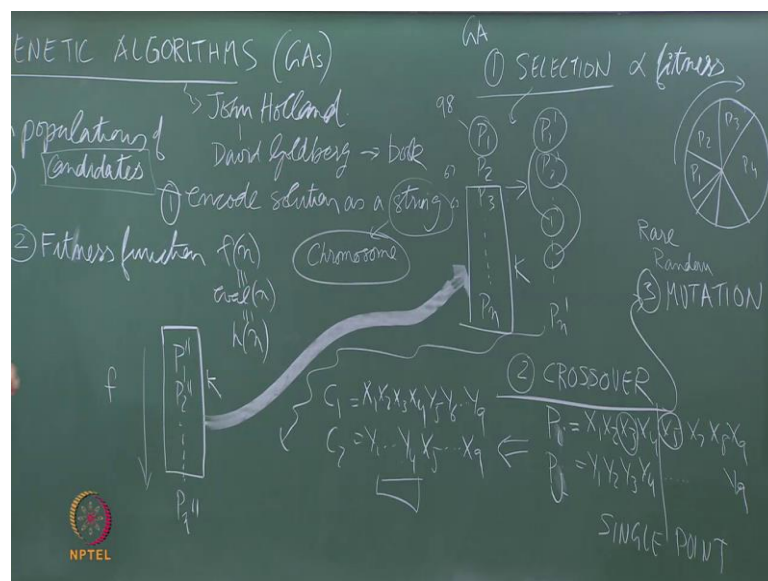 ENETIC ALGORITHMS (GAs)
John Holland
David Goldberg → book
populations of
candidates
① encode solution as a string
Chromosome
② Fitness function f(n)
eval(n)
h(n)
GA
① SELECTION ∝ fitness
98
P1 P1'
P2 P2'
P3
K
Pn Pn'
P1
P2
P3
P4
Rare
Random
③ MUTATION
② CROSSOVER
Pi = X1X2X3X4X5X7X8X9
Pj = Y1Y2Y3Y4 ...... Y9
SINGLE POINT
C1 = X1X2X3X4Y5Y6...Y9
C2 = Y1...Y4X5...X9
f
P1''
P2''
K
NPTEL